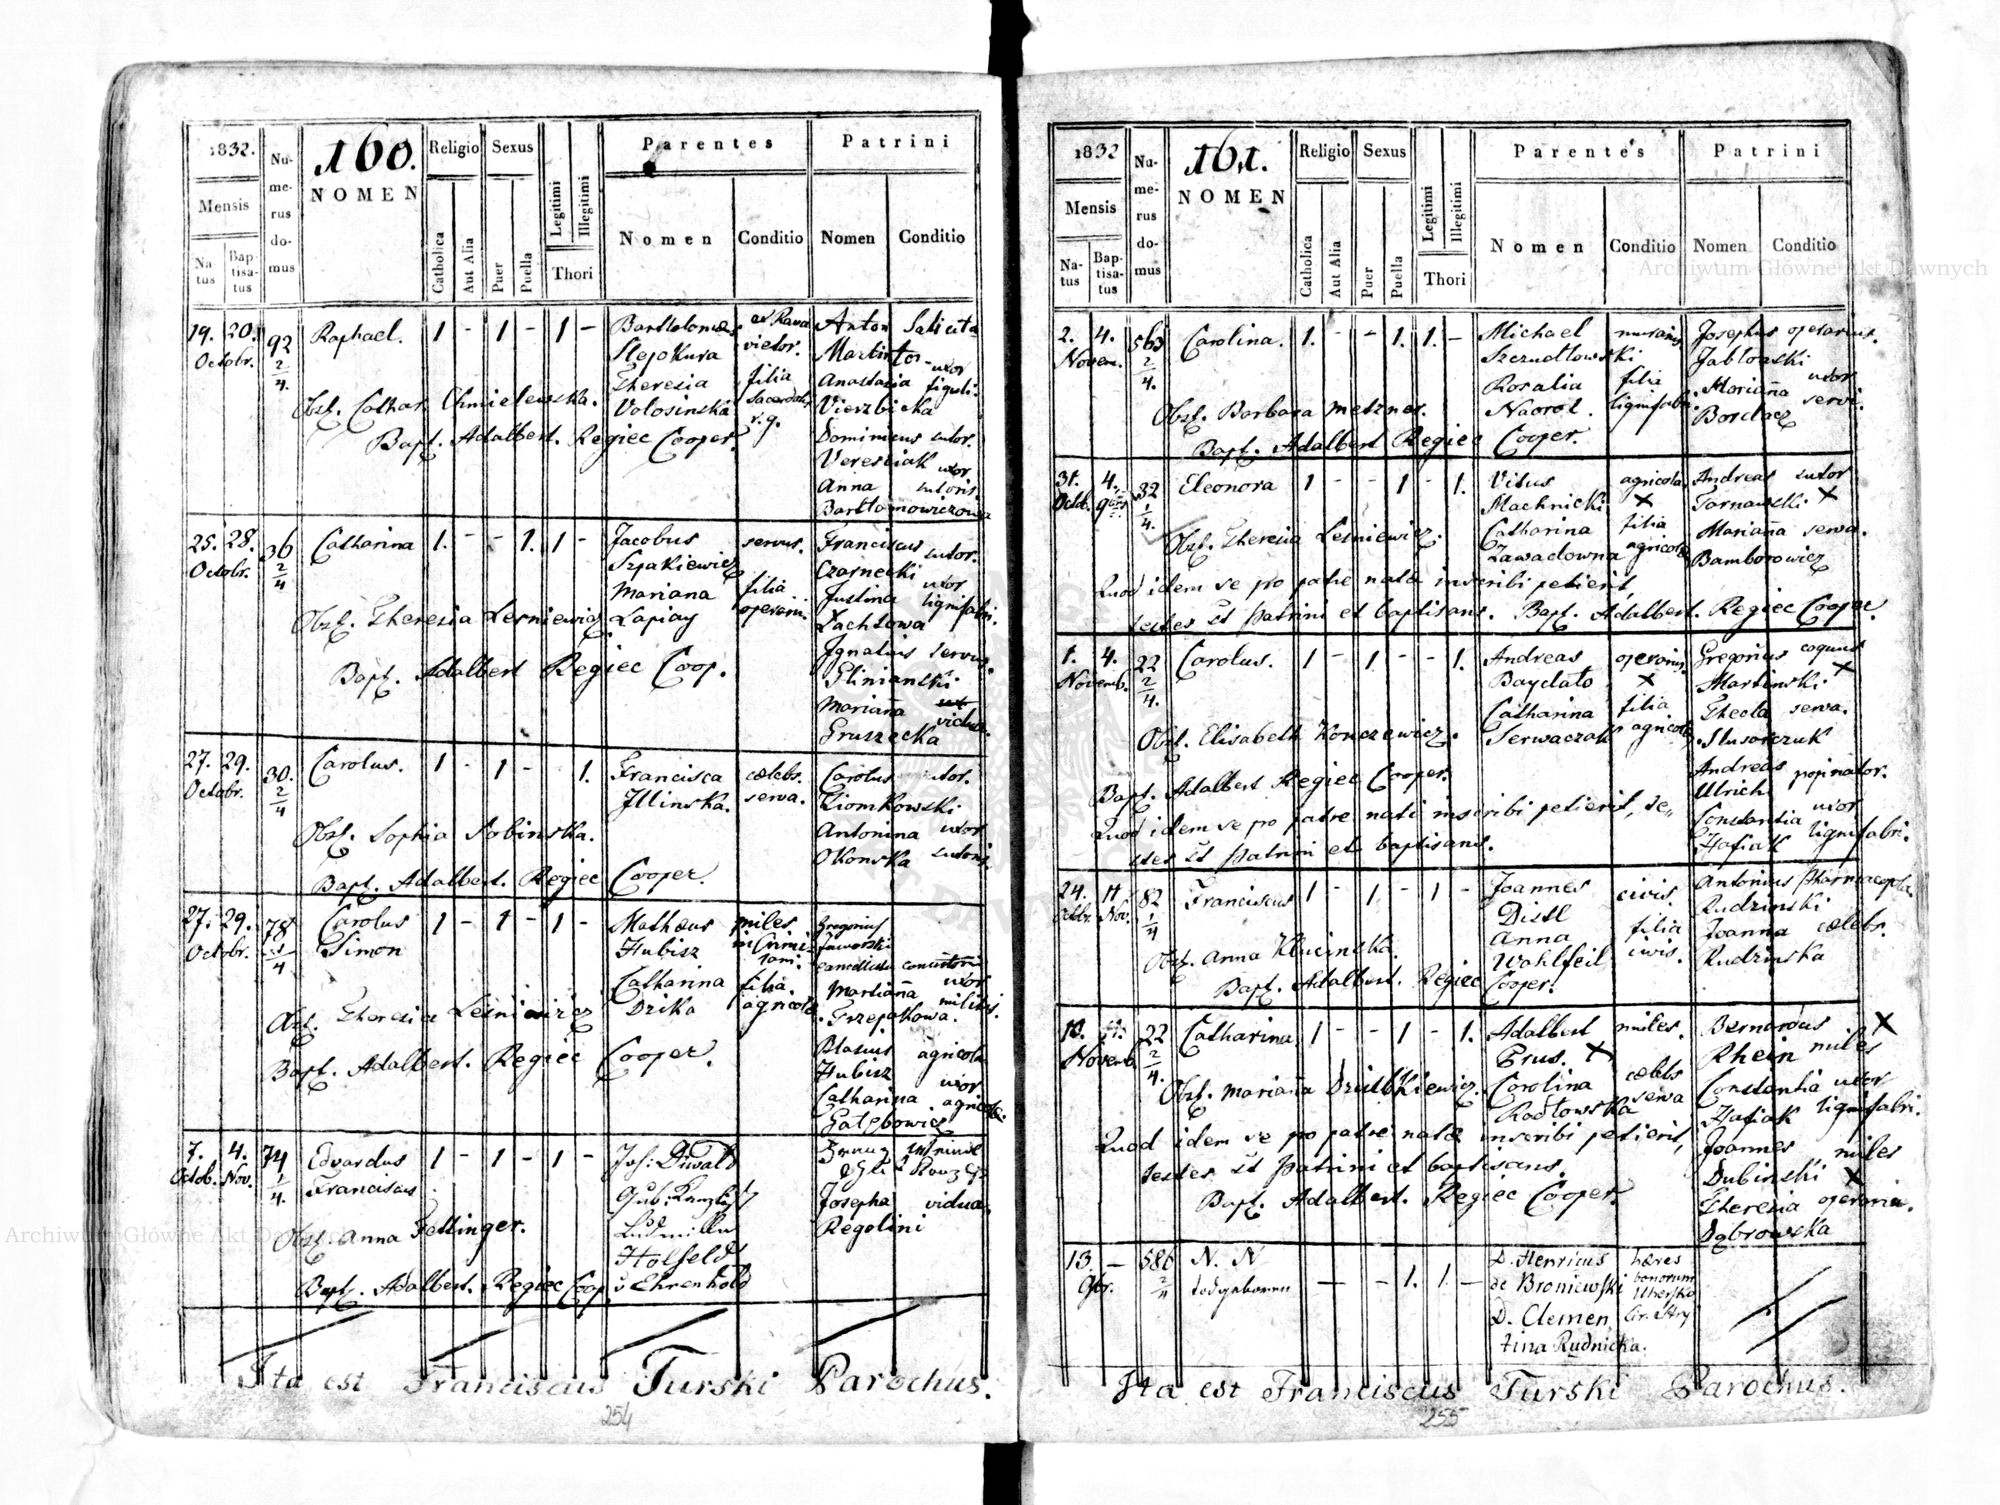 1832.
160.
Numerus domus
NOMEN
Religio
Sexus
Parentes
Patrini
Mensis
Natus
Baptisatus
Catholica
Aut Alia
Puer
Puella
Legitimi
Illegitimi
Thori
Nomen
Conditio
Nomen
Conditio
19. 20. 92 Raphael. 1 - 1 - 1 - Bartholomæus ex Rava Anton
Octobr. 2/4. victor. Martin
Theresia filia Anastasia uxor figuli.
Obst. Cathar. Chmielewska. Volosinska Sacerdotis Vierzbicka
Bapt. Adalbert. Regiec Cooper. r. g. Dominicus sutor.
Veresziak uxor
Anna sutoris
Bartłomowiczowa
25. 28. 36 Catharina 1. - - 1. 1 - Jacobus servus. Franciscus sutor.
Octobr. 2/4 Szpakiewicz Czajnecki
Mariana filia Justina uxor lignifabri.
Obst. Theresia Lesniewicz Łapiay operarii. Zachłowa
Bapt. Adalbert Regiec Coop. Ignatius servus.
Glinianski
Marianna vidua.
Gruszecka
27. 29. 30. Carolus. 1 - 1 - 1. Francisca cælebs. Carolus sutor.
Octobr. 2/4 Illinska. serva. Ziomkowski
Obst. Sophia Sobinska. Antonina uxor
Okonska sutoris.
Bapt. Adalbert. Regiec Cooper.
27. 29. 78 Carolus 1 - 1 - 1 - Mathæus miles Gregorius
Octobr. 1/4 Simon Hubisz Jaworski
Catharina filia. Marianna uxor
Obst. Theresia Lesniewicz Dzika agricolæ militis.
Bapt. Adalbert. Regiec Cooper. Blasius agricola
Hubisz uxor
Catharina agricolæ.
Gałębowicz
7. 4. 74 Edvardus 1 - 1 - 1 - Joh: Duwald
Octob. Nov. 1/4. Franciscus
Josepha vidua.
Ludmilla Regolini
Obst. Anna Fellinger. Holfeld
Bapt. Adalbert. Regiec Coop. v Ehrenhold
Ita est Franciscus Turski Parochus.
254
1832
161.
Numerus domus
NOMEN
Religio
Sexus
Parentes
Patrini
Mensis
Natus
Baptisatus
Catholica
Aut Alia
Puer
Puella
Legitimi
Illegitimi
Thori
Nomen
Conditio
Nomen
Conditio
2. 4. 563 Carolina. 1. - - 1. 1. - Michael murarius Josephus operarius.
Novem. 2/4. Szczudłowski Jabłonski
Rosalia filia Marianna uxor
Obst. Barbara Metzner. Naorol. lignifabri. Bordacz servi.
Bapt. Adalbert Regiec Cooper.
31. 4. 32 Eleonora 1 - - 1 - 1. Vitus agricola Andreas sutor
Octob. 9bris 1/4. Machnicki X Tarnawski X
Catharina filia Marianna serva.
Obst. Theresia Lesniewicz. Zawadowna agricolæ Bamborowicz
Quod idem se pro patre natæ inscribi petierit,
testes st Patrini et baptisans. Bapt. Adalbert. Regiec Cooper.
1. 4. 22 Carolus. 1 - 1. - - 1. Andreas operarius Gregorius coquus
Novemb. 2/4. Baydało X Martinski X
Catharina filia Thecla serva.
Obst. Elisabeth Konczewicz. Serwaczak agricolæ Slusarczuk
Bapt. Adalbert Regiec Cooper. Andreas popinator.
Ulrich
Quod idem se pro patre nati inscribi petierit, te„ Constantia uxor
stes st Patrini et baptisans. Hafiak lignifabri.
24. 11 82 Franciscus 1 - 1 - 1 - Joannes civis. Antonius Pharmacopola
Octbr. Nov. 1/4 Distl Rudzinski
Anna filia Joanna cælebs.
Obst. Anna Klucinska. Wohlfeil civis. Rudzinska
Bapt. Adalbert. Regiec Cooper.
10. 11. 22 Catharina 1 - - 1 - 1. Adalbert miles. Bernardus X
Novemb. 2/4. Prus. X Rhein miles
Obst. Marianna Dziubkiewicz. Carolina cælebs Constantia uxor
Radłowska serva Hafiak lignifabri.
Quod idem se pro patre natæ inscribi petierit, Joannes miles
testes st Patrini et baptisans. Dubinski X
Bapt. Adalbert. Regiec Cooper. Theresia operaria.
Dąbrowska
13. - 586 N. N — - 1. 1. - D. Henricus hæres
9br. 2/4 todgeboren de Broniewski bonorum
D. Clemen Cir. Stry
tina Rudnicka.
Ita est Franciscus Turski Parochus.
255
Archiwum Główne Akt Dawnych
Archiwum Główne Akt Dawnych